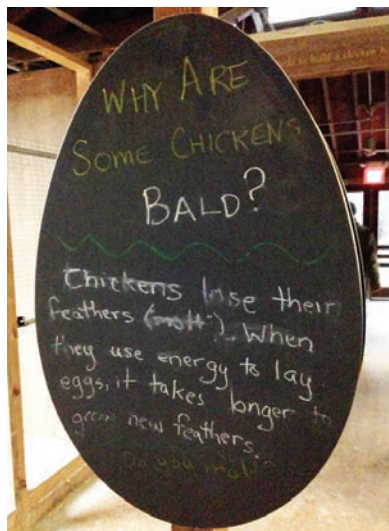 WHY ARE
SOME CHICKENS
BALD?
Chickens lose their
feathers ("molt"). When
they use energy to lay
eggs, it takes longer to
grow new feathers.
Do you molt?
to build a chicken